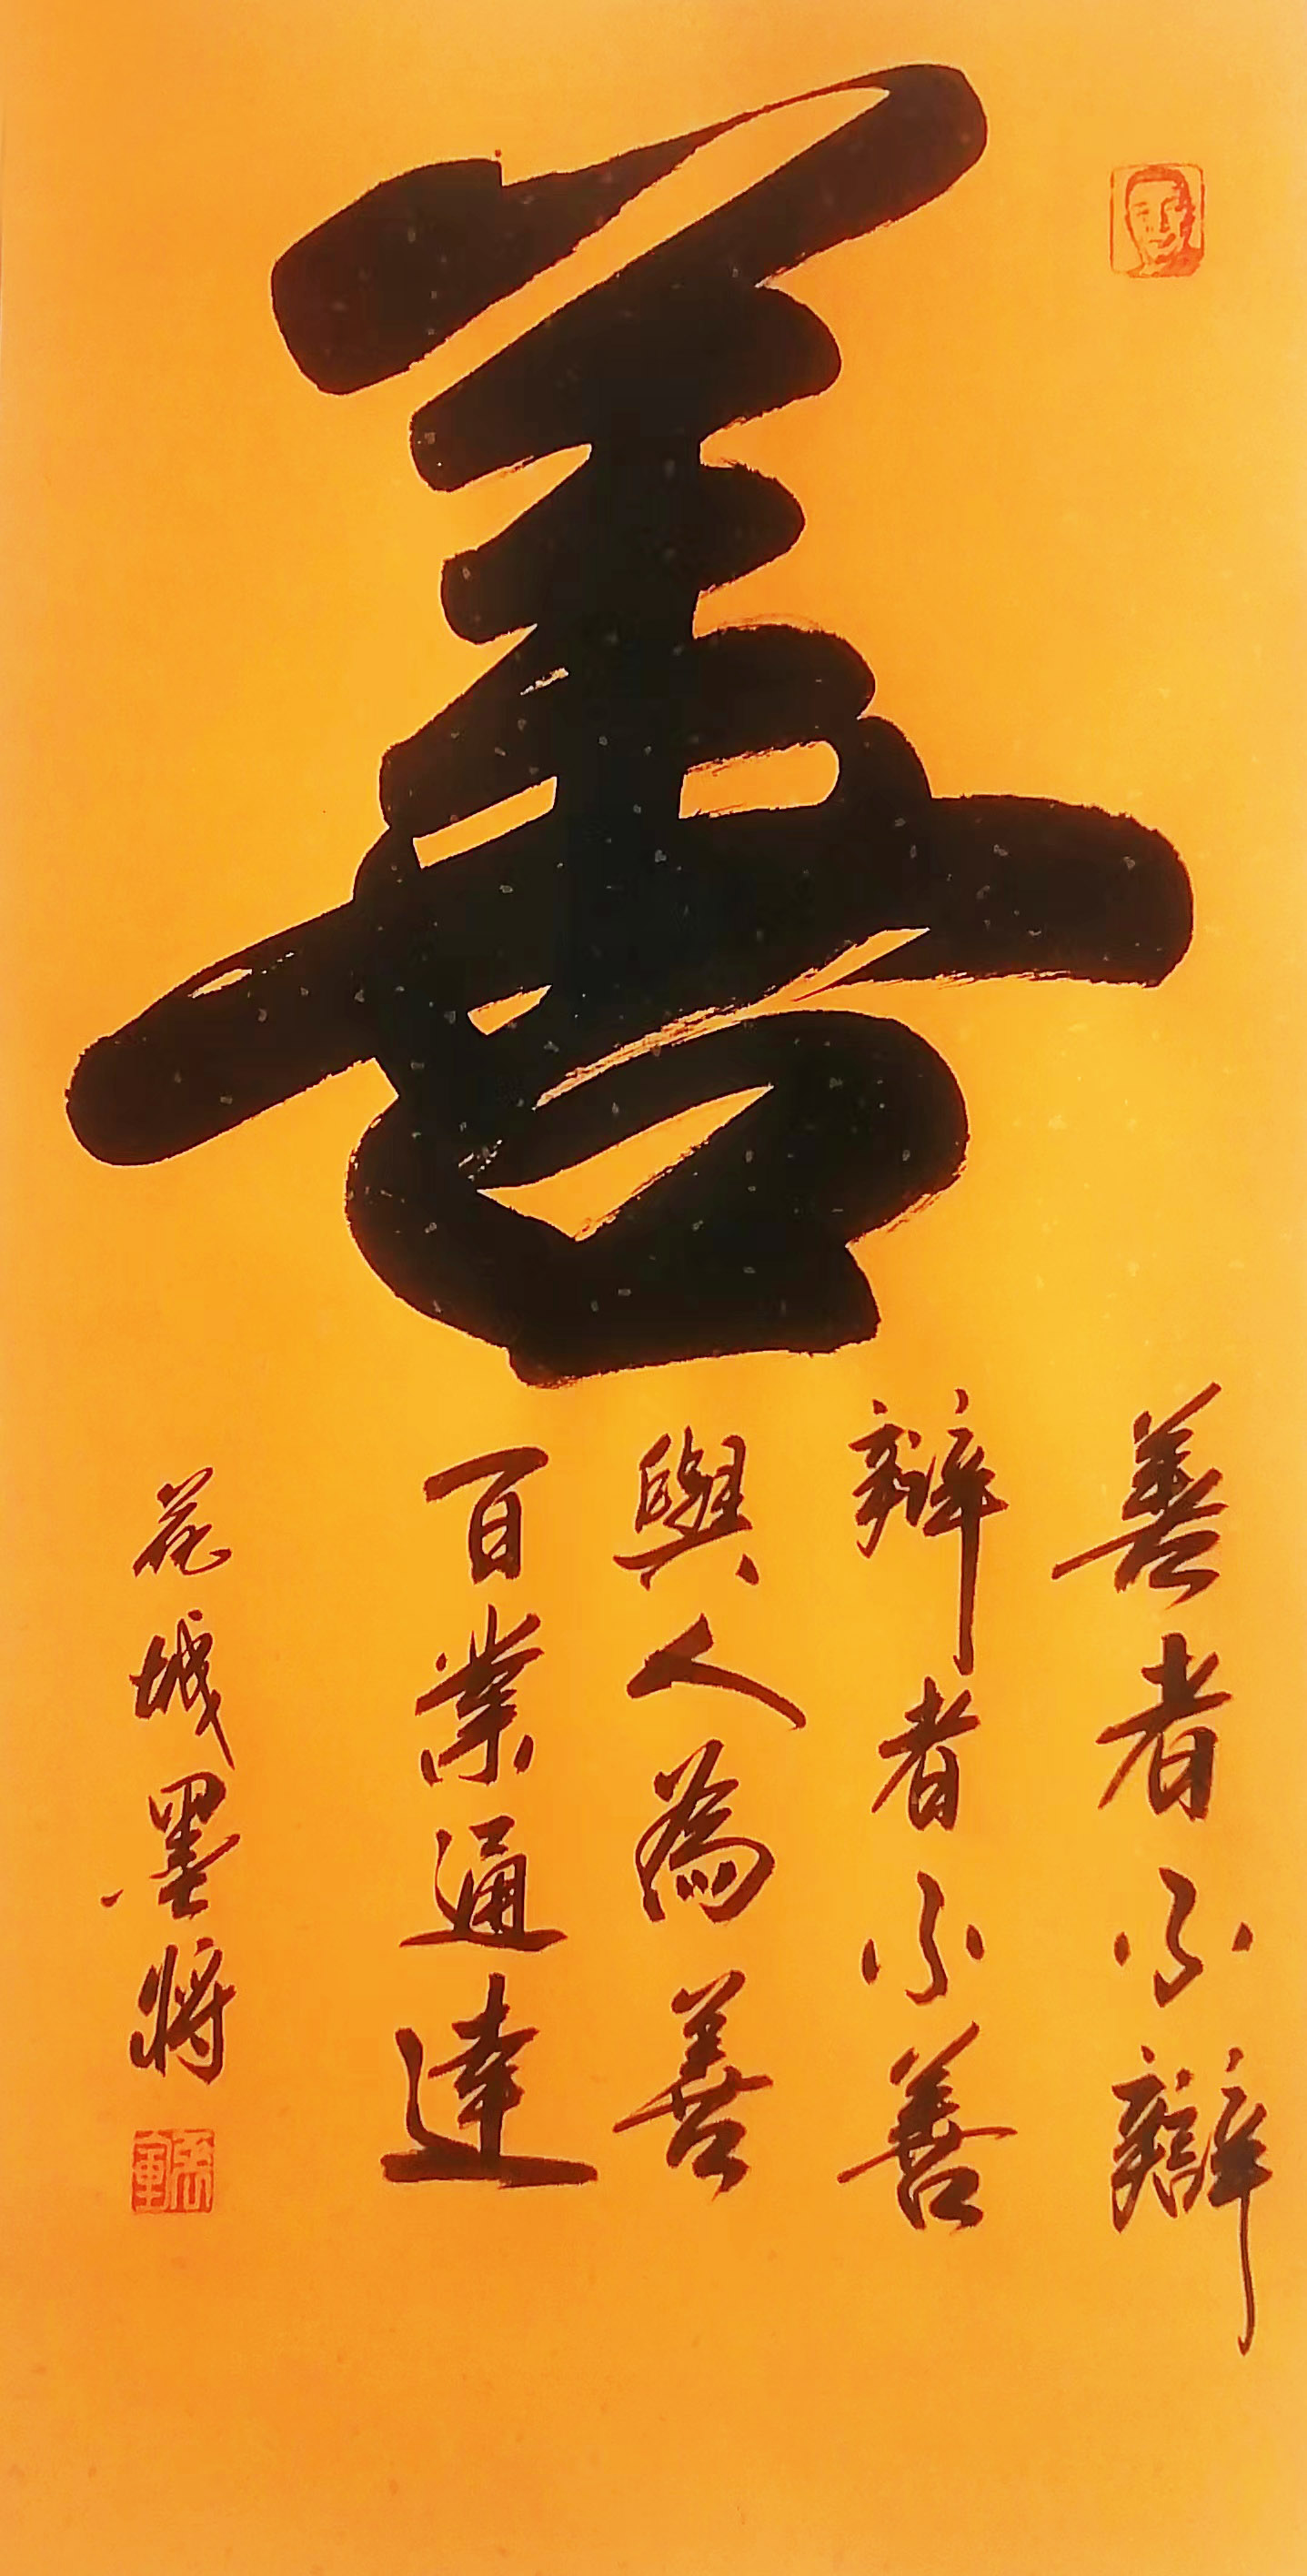 善
善者不辯
辯者不善
與人為善
百業通達
花城墨将